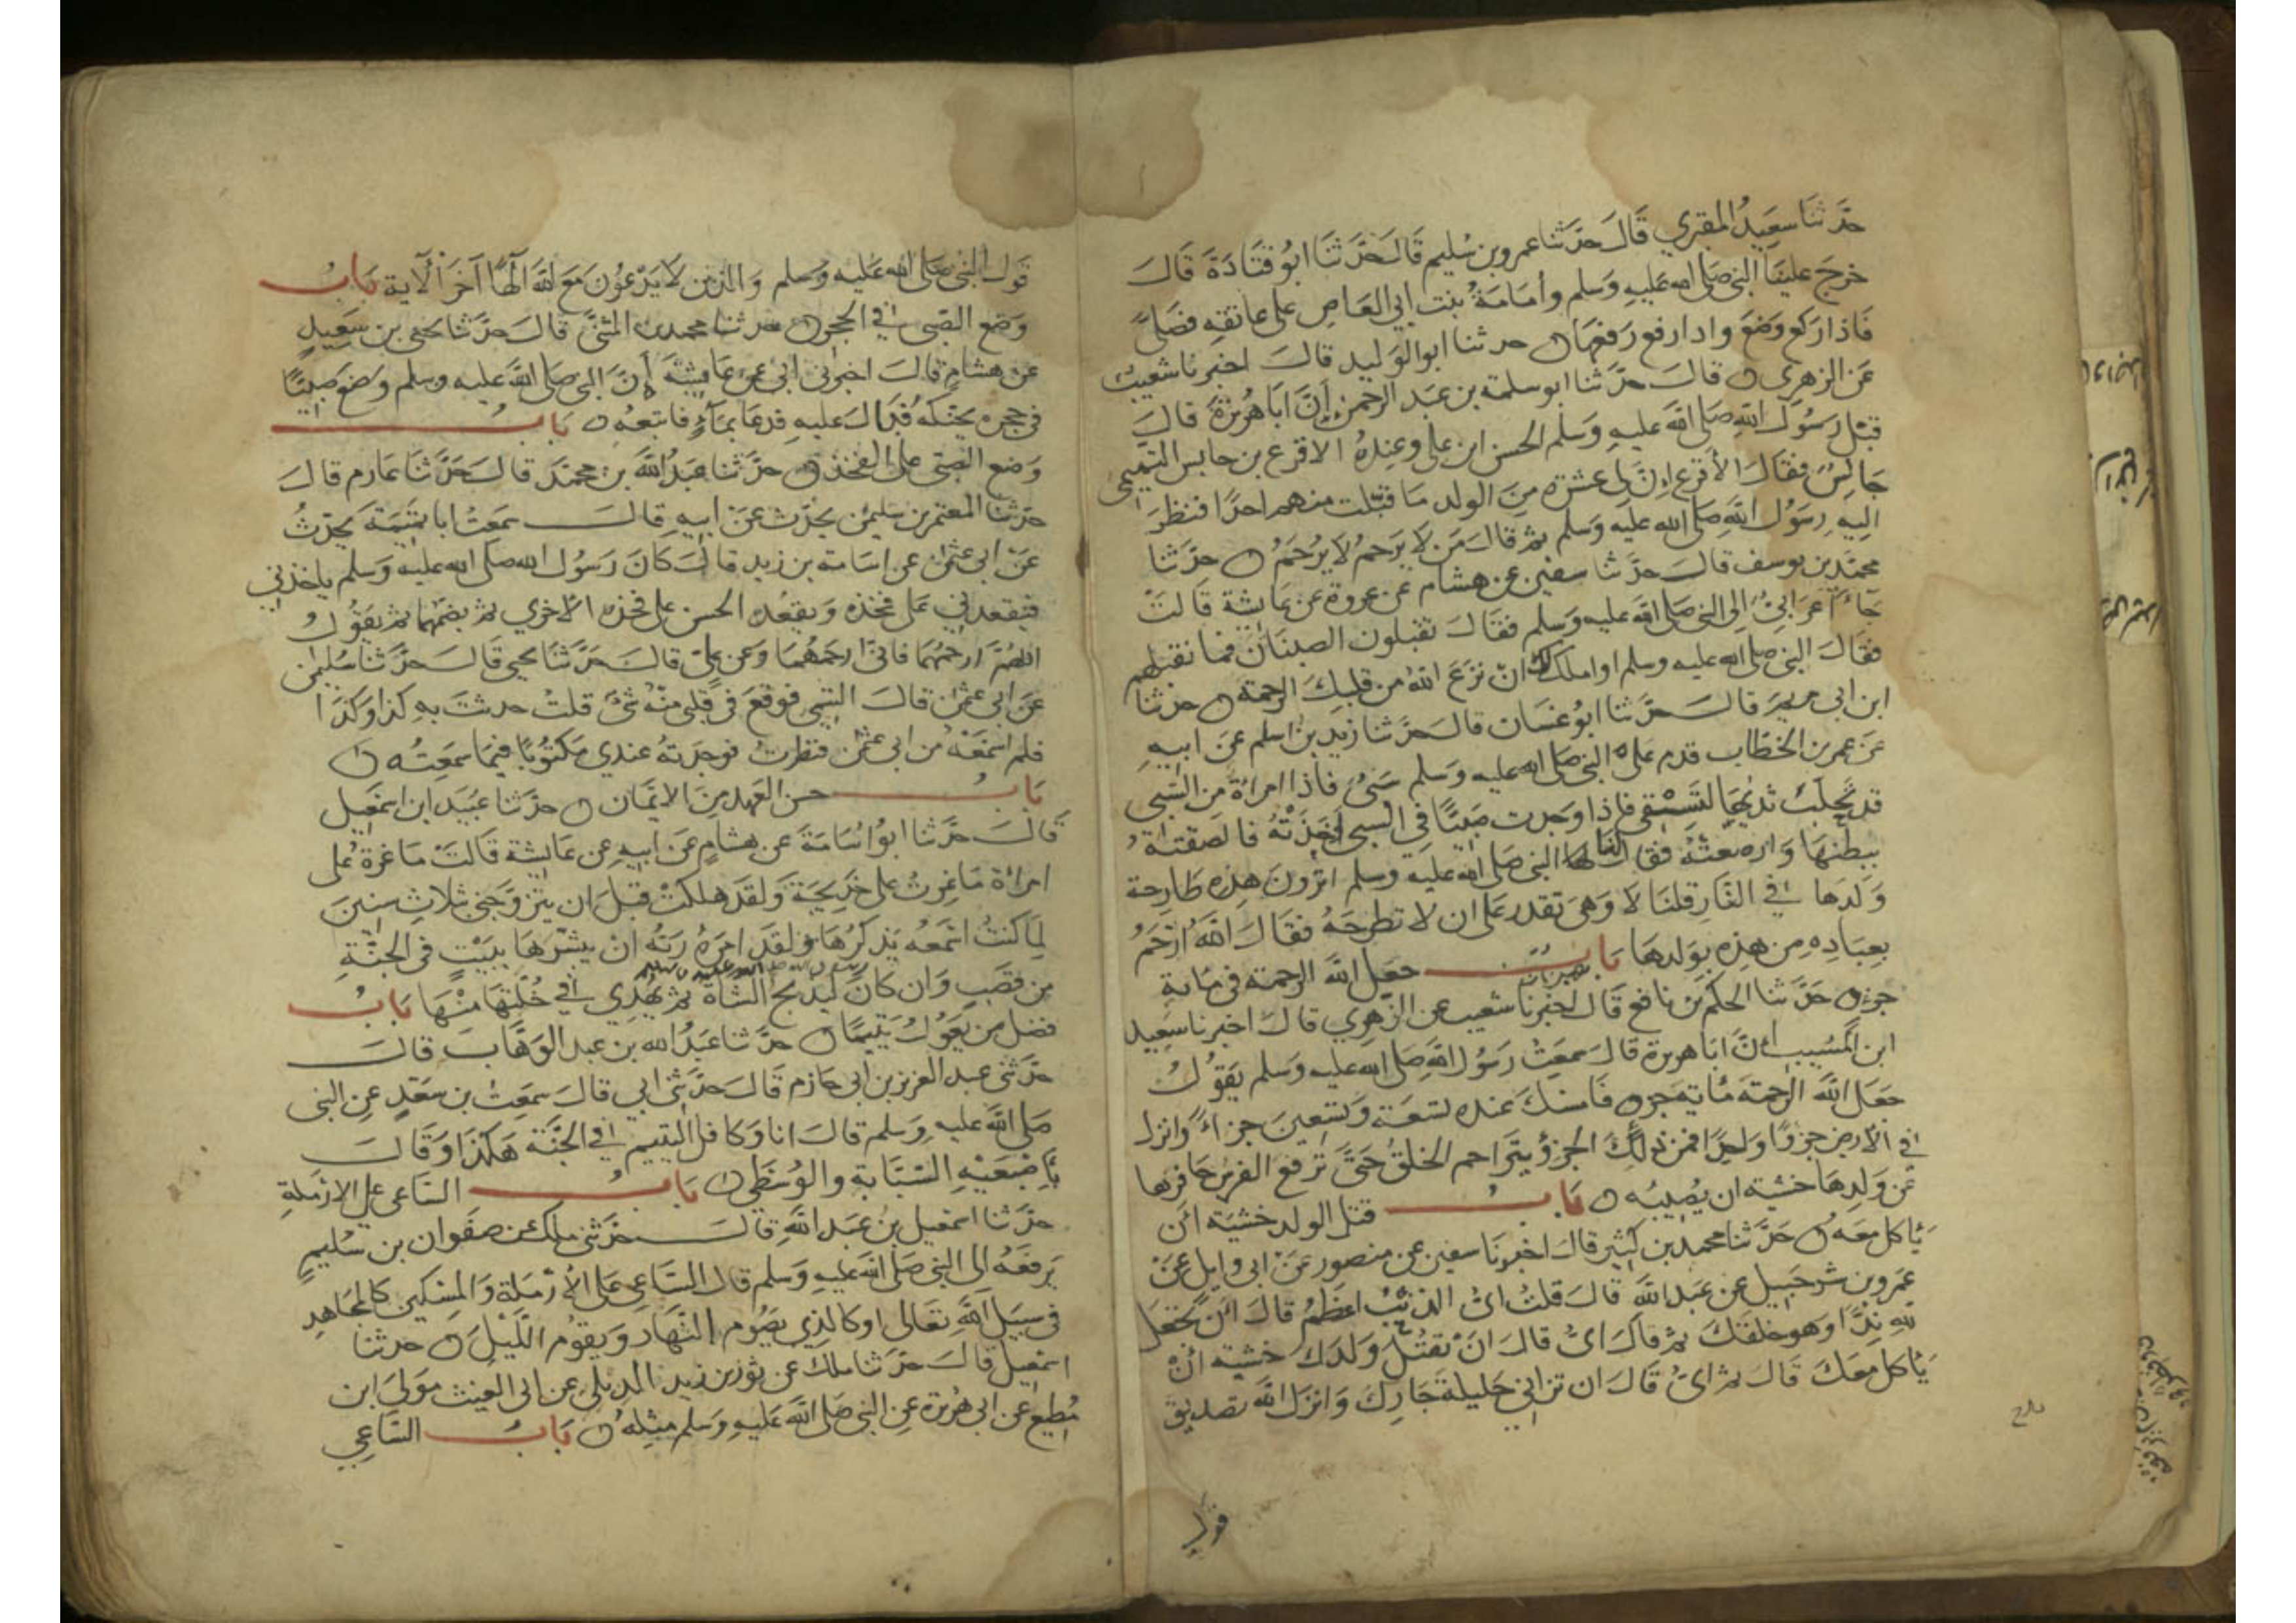 حَدَّثنَا سَعِيدُ المقبري قَالَ حدَّثنا عمرو بن سُليم قَالَ حَدَّثنَا ابُو قتَادَةَ قَالَ
خرجَ علينَا النبي صَلى الله عَليهِ وَسَلم وأمَامَةُ بنت ابي العَاصِ على عاتقهِ فصَلَّى
فَاذا ركع وضعَ واذا رفع رَفعهَا حدثنا ابو الوَليد قالَ اخبرنا شعيبٌ
عَن الزهري قالَ حدَّثنا ابو سلمة بن عَبد الرحمن اِنَّ ابَا هُريرَةَ قالَ
قبّل رسُولُ اللهِ صَلى اللهُ عليهِ وَسَلم الحسن ابن علي وعِندهُ الاقرع بن حابس التميمي
جَالِسٌ فقالَ الأقرَع اِنَّ لي عشرَة مِنَ الولد مَا قبَّلت منهم احدًا فنظرَ
اليهِ رسُول اللهِ صَلى الله عَليه وَسَلم ثم قالَ مَن لا يَرحمُ لا يُرحَمُ حدَّثنا
محمَّد بن يوسف قالَ حدَّثنا سفين عن هشام عَن عروة عن عَايشة قالتْ
جَاءَ اعرَابيٌّ الى النبي صَلى الله عليه وَسَلم فقَالَ تقبلون الصبيَان فما نقبلهم
فقالَ النبي صلى الله عليه وسلم او املك لك ان نزَعَ اللهُ من قلبِكَ الرحمة حدثنا
ابن ابي مريمَ قالَ حدَّثنا ابُو غسَّان قالَ حدثنا زيد بن اسلم عَن ابيهِ
عَن عمر بن الخطاب قدم عَلى النبي صَلى الله عليه وَسَلم سَبيٌ فاذا امراةٌ من السَّبي
قد تحلبَ ثديُهَا لتسْقي فاِذا وَجدت صَبيًّا في السبي اَخَذَتْهُ فالصَقتهُ
ببطنهَا وَارضعتْهُ فقالَ لنا النبي صَلى الله عليه وسَلم اترونَ هذِه طارحة
وَلدَها في النَّارِ قلنَا لا وَهيَ تقدر عَلى ان لا تطرحَهُ فقالَ اللهُ ارْحَمُ
بعِبَادِهِ مِن هَذِه بِوَلدها بَابُ جعَل اللهُ الرحمة في مَاية
جزءٍ حَدَّثنا الحكم بن نافع قَالَ اخبرنا شعيب عن الزهري قالَ اخبرنا سَعِيد
ابن المُسَيب اَنَّ ابَا هريرة قالَ سَمعتُ رَسُول اللهِ صَلى الله عليه وسَلم يَقُولُ
جعَل اللهُ الرحمَة مَاية جزءٍ فَامسَكَ عنده تسعَة وَتسعينَ جزءًا وانزلَ
في الأرضِ جزءًا واحدًا فمن ذلكَ الجزءُ يتَراحم الخلقُ حَتى ترفع الفرسُ حافرهَا
عَن وَلدِهَا خشية ان يُصِيبُه بَابُ قتل الولد خشيَة اَن
يَأكل معَه حَدَّثنَا محمد بن كثير قالَ اخبرنَا سفين عن منصور عَن ابي وايل عَن
عَمرو بن شرَحبيل عن عَبد الله قالَ قلتُ ايُّ الذنْبِ اعظمُ قالَ اَن تَجعلَ
للهِ نِدًّا وهو خلقَكَ ثم قالَ ايُّ قالَ ان تقتُلَ وَلدَكَ خشية ان
يَأكل معَكَ قَالَ ثم ايُّ قَالَ ان تزاني حَليلَة جَارِكَ وَانزَلَ اللهُ تصديقَ
قول
بلغ
قَولَ النبي صَلى الله عَليه وَسَلم وَالذينَ لا يَدْعُونَ مَعَ اللهِ اِلهًا آخَرَ الآية بَابُ
وَضع الصَّبي في الحجر حدثنا محمد بن المثنَّى قالَ حَدَّثنا يحيى بن سَعِيدٍ
عَن هشام قالَ اخبرني ابي عن عَايشةَ اَنَّ النبي صَلى الله عَليه وسلم وَضعَ صَبيًّا
في حجره يحنكه فبَالَ عَليه فدعَا بمَآءٍ فاتبعَهُ بَابُ
وَضع الصَّبي عَلى الفخذ حدَّثنا عَبدُ الله بن محمَّد قالَ حَدَّثنَا عَارم قالَ
حدثنا المعتمر بن سليمن يحدِّث عَن ابيهِ قالَ سَمعتُ ابا تميمَة يحدِّثُ
عَن ابي عثمن عن اسَامة بن زيد قالَ كانَ رَسُول الله صَلى الله عليه وَسَلم ياخذني
فيقعدني عَلى فخذه وَيقعدُ الحسن عَلى فخذه الاخرى ثم يضمّهما ثم يَقُولُ
اللهُمَّ ارْحمهُمَا فانّي ارحَمُهُمَا وَعَن علي قالَ حَدَّثنا يحيى قالَ حدَّثنا سُليمن
عَن ابي عثمن قالَ التيمي فوقعَ في قلبي منْهُ شيٌ قلتُ حدثتَ بهِ كذا وَكذَا
فلم اسمَعْهُ من ابي عثمن فنظرتُ فوجدتهُ عندي مكتُوبًا فيمَا سَمعتُه
بَابُ حسن العَهد مِنَ الايمَان حدَّثنا عبَيد ابن اسمعيل
قَالَ حدَّثنا ابُو اسَامَةَ عَن هشامٍ عَن ابيهِ عن عَايشة قالَتْ مَا غرتُ عَلى
امراةٍ مَا غِرتُ على خَدِيجَةَ وَلقد هلكتْ قبل ان يتزوَّجني بثلاثِ سنينَ
لِمَا كنتُ اسمعُه يذكرُهَا وَلقد امرَهُ رَبُّه انْ يبشِّرَهَا ببَيْتٍ في الجنَّةِ
من قصَبٍ وَان كانَ رسول الله صلى الله عليه وسلم ليذبح الشاة ثم يُهْدي في خُلَّتِهَا منْهَا بَابُ
فضل من يَعُولُ يَتيمًا حدَّثنا عَبدُ الله بن عبد الوَهَّاب قالَ
حدَّثني عبد العزيز بن ابي حازم قَالَ حدَّثني ابي قالَ سَمِعتُ بن سَعْدٍ عن النبي
صَلى الله عليهِ وسَلم قالَ انا وَكافل اليتيم في الجنَّة هَكذا وَقالَ
باِصْبَعَيْهِ السَّبَّابةِ والوُسْطَى بَابُ السَّاعي عَلى الارْملةِ
حدَّثنا اسمعيل بنُ عَبد اللهِ قالَ حدَّثني ملك عن صَفوان بن سُليمٍ
يَرفعُه الى النبي صَلى الله عليهِ وَسَلم قال السَّاعي عَلى الأرْمَلَة وَالمِسْكين كالمجَاهِدِ
في سَبيلِ اللهِ تعَالى اوكالذي يصُوم النَّهَارَ وَيَقُومُ اللَّيْلَ حدثنا
اسمعيل قالَ حدَّثنا ملك عن ثور بن زيد الديلي عن ابي الغيث مَولَى ابن
مُطيع عَن ابي هُريرَة عن النبي صَلى الله عَليهِ وَسَلم مثلهُ بَابُ السَّاعِي